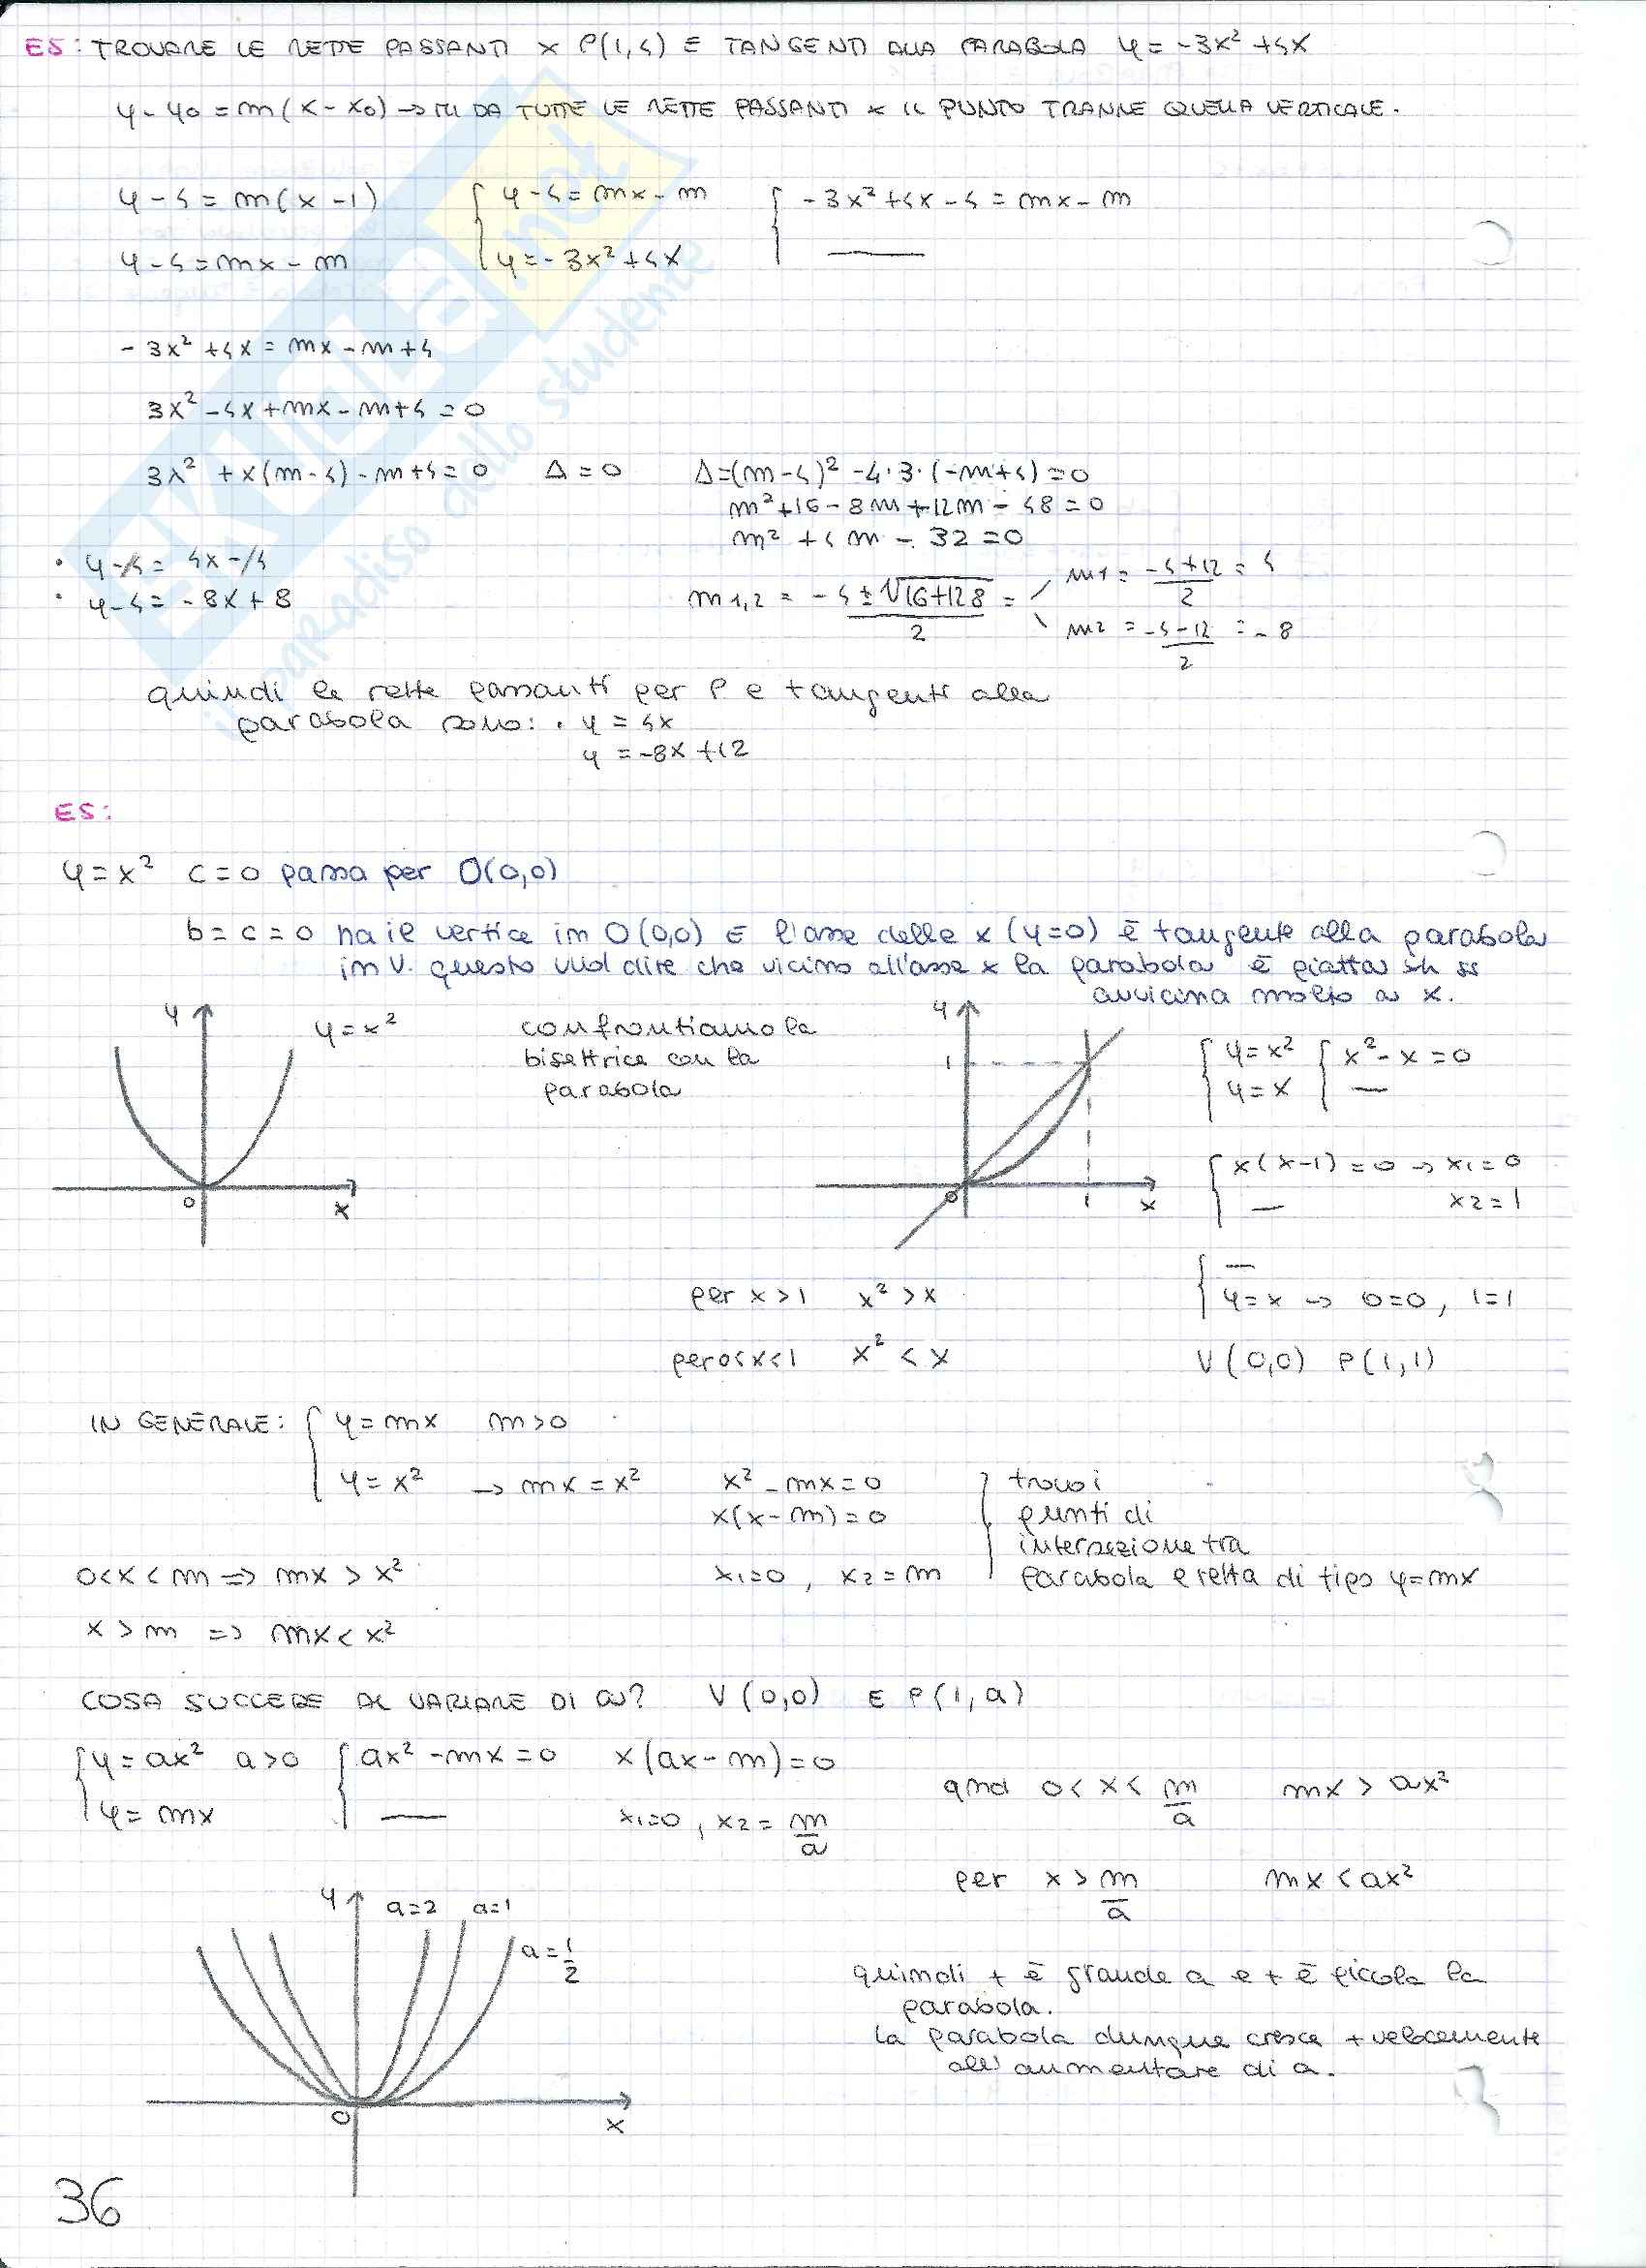 ES: TROVARE LE RETTE PASSANTI x P(1,4) E TANGENTI ALLA PARABOLA y = -3x² + 4x
y - y0 = m(x - x0) → MI DA TUTTE LE RETTE PASSANTI x IL PUNTO TRANNE QUELLA VERTICALE.
y - 4 = m(x - 1)
y - 4 = mx - m
{ y - 4 = mx - m
y = -3x² + 4x
{ -3x² + 4x - 4 = mx - m
—
-3x² + 4x = mx - m + 4
3x² - 4x + mx - m + 4 = 0
3x² + x(m - 4) - m + 4 = 0 Δ = 0 Δ = (m - 4)² - 4·3·(-m + 4) = 0
m² + 16 - 8m + 12m - 48 = 0
m² + 4m - 32 = 0
• y - 4 = 4x - 4
• y - 4 = -8x + 8
m1,2 = -4 ± √16+128 / 2 =
m1 = -4+12 / 2 = 4
m2 = -4-12 / 2 = -8
quindi le rette passanti per P e tangenti alla
parabola sono: • y = 4x
y = -8x + 12
ES:
y = x² c = 0 passa per O(0,0)
b = c = 0 ha il vertice in O(0,0) E l'asse delle x (y=0) è tangente alla parabola
in V. questo vuol dire che vicino all'asse x la parabola è piatta
avvicina molto a x.
y
y = x²
O
x
confrontiamo la
bisettrice con la
parabola
y
1
O
1
x
{ y = x²
y = x
{ x² - x = 0
—
{ x(x-1) = 0 → x1 = 0
— x2 = 1
{ —
y = x → 0=0, 1=1
per x > 1 x² > x
per 0<x<1 x² < x
V(0,0) P(1,1)
IN GENERALE: { y = mx m > 0
y = x² → mx = x² x² - mx = 0
x(x - m) = 0
x1=0, x2 = m
trovo i
punti di
intersezione tra
parabola e retta di tipo y=mx
0<x<m ⇒ mx > x²
x > m ⇒ mx < x²
COSA SUCCEDE AL VARIARE DI a? V(0,0) E P(1,a)
{ y = ax² a>0 { ax² - mx = 0 x(ax - m) = 0
y = mx — x1=0, x2 = m/a
qnd 0 < x < m/a mx > ax²
per x > m/a mx < ax²
y
a=2 a=1
a = 1/2
O
x
quindi + è grande a e + è piccola la
parabola.
La parabola dunque cresce + velocemente
all'aumentare di a.
36
EXUEA.net
il paradiso dello studente